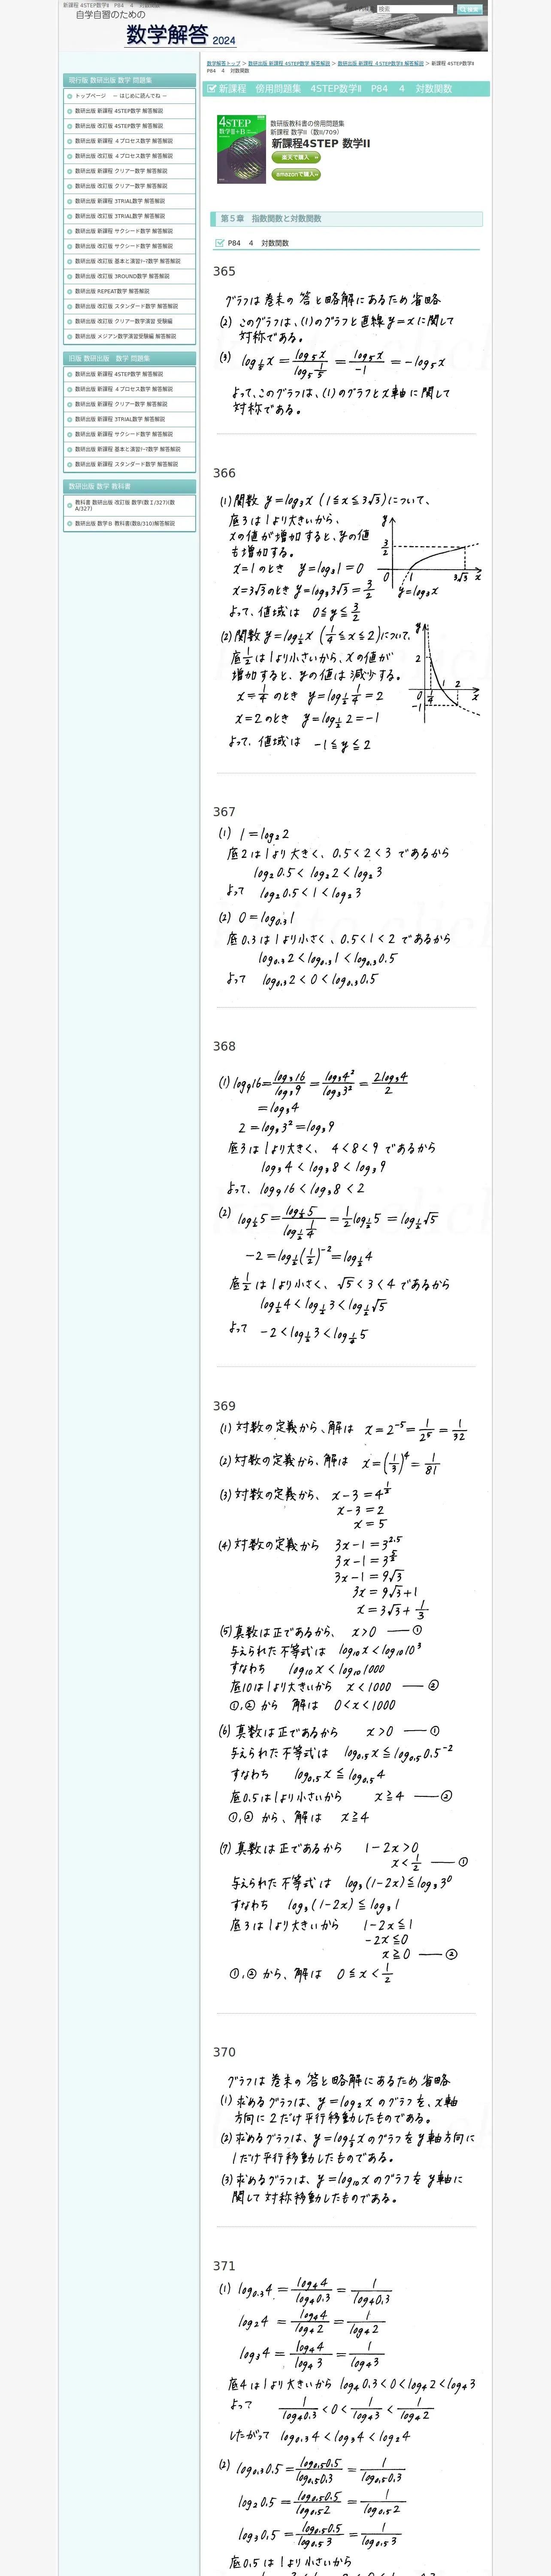 新課程 4STEP数学Ⅱ P84 4 対数関数
自学自習のための
数学解答 2024
検索
検索
数学解答トップ > 数研出版 新課程 4STEP数学 解答解説 > 数研出版 新課程 4STEP数学Ⅱ 解答解説 > 新課程 4STEP数学Ⅱ
P84 4 対数関数
現行版 数研出版 数学 問題集
トップページ ～ はじめに読んでね ～
数研出版 新課程 4STEP数学 解答解説
数研出版 改訂版 4STEP数学 解答解説
数研出版 新課程 ４プロセス数学 解答解説
数研出版 改訂版 ４プロセス数学 解答解説
数研出版 新課程 クリアー数学 解答解説
数研出版 改訂版 クリアー数学 解答解説
数研出版 新課程 3TRIAL数学 解答解説
数研出版 改訂版 3TRIAL数学 解答解説
数研出版 新課程 サクシード数学 解答解説
数研出版 改訂版 サクシード数学 解答解説
数研出版 改訂版 3ROUND数学 解答解説
数研出版 REPEAT数学 解答解説
数研出版 改訂版 スタンダード数学 解答解説
数研出版 改訂版 クリアー数学演習 受験編
数研出版 メジアン数学演習受験編 解答解説
旧版 数研出版 数学 問題集
数研出版 新課程 4STEP数学 解答解説
数研出版 新課程 ４プロセス数学 解答解説
数研出版 新課程 クリアー数学 解答解説
数研出版 新課程 3TRIAL数学 解答解説
数研出版 新課程 サクシード数学 解答解説
数研出版 新課程 スタンダード数学 解答解説
数研出版 数学 教科書
教科書 数研出版 改訂版 数学(数Ⅰ/327)(数
A/327)
数研出版 数学Ｂ 教科書(数B/310)解答解説
新課程 傍用問題集 4STEP数学Ⅱ P84 4 対数関数
4STEP
数研版教科書の傍用問題集
新課程 数学Ⅱ（数Ⅱ/709）
新課程4STEP 数学II
楽天で購入
amazonで購入
第５章 指数関数と対数関数
P84 4 対数関数
365
グラフは巻末の答と略解にあるため省略
(2) このグラフは、(1)のグラフと直線 y=x に関して
対称である。
(3) log_{1/5} x = log₅x / log₅(1/5) = log₅x / -1 = -log₅x
よって、このグラフは、(1)のグラフとx軸に関して
対称である。
366
(1) 関数 y=log₃x (1≦x≦3√3)について、
底3は1より大きいから、
xの値が増加すると、yの値
も増加する。
x=1のとき y=log₃1=0
x=3√3のとき y=log₃3√3=3/2
よって、値域は 0≦y≦3/2
y 3/2 0 1 3√3 x y=log₃x
(2) 関数 y=log_{1/2}x (1/4≦x≦2)について、
底1/2は1より小さいから、xの値が
増加すると、yの値は減少する。
x=1/4のとき y=log_{1/2}1/4=2
x=2のとき y=log_{1/2}2=-1
よって、値域は -1≦y≦2
y 2 0 1/4 1 2 x -1
367
(1) 1=log₂2
底2は1より大きく、0.5<2<3 であるから
log₂0.5<log₂2<log₂3
よって log₂0.5<1<log₂3
(2) 0=log₀.₃1
底0.3は1より小さく、0.5<1<2 であるから
log₀.₃2<log₀.₃1<log₀.₃0.5
よって log₀.₃2<0<log₀.₃0.5
368
(1) log₉16=log₃16/log₃9=log₃4²/log₃3²=2log₃4/2
=log₃4
2=log₃3²=log₃9
底3は1より大きく、4<8<9 であるから
log₃4<log₃8<log₃9
よって、log₉16<log₃8<2
(2) log_{1/4}5=log_{1/2}5/log_{1/2}(1/4)=1/2 log_{1/2}5=log_{1/2}√5
-2=log_{1/2}(1/2)⁻²=log_{1/2}4
底1/2は1より小さく、√5<3<4 であるから
log_{1/2}4<log_{1/2}3<log_{1/2}√5
よって -2<log_{1/2}3<log_{1/4}5
369
(1) 対数の定義から、解は x=2⁻⁵=1/2⁵=1/32
(2) 対数の定義から、解は x=(1/3)⁴=1/81
(3) 対数の定義から、 x-3=4^{1/2}
x-3=2
x=5
(4) 対数の定義から 3x-1=3^{2.5}
3x-1=3^{5/2}
3x-1=9√3
3x=9√3+1
x=3√3+1/3
(5) 真数は正であるから、 x>0 ―①
与えられた不等式は log₁₀x<log₁₀10³
すなわち log₁₀x<log₁₀1000
底10は1より大きいから x<1000 ―②
①,②から 解は 0<x<1000
(6) 真数は正であるから x>0 ―①
与えられた不等式は log₀.₅x≦log₀.₅0.5⁻²
すなわち log₀.₅x≦log₀.₅4
底0.5は1より小さいから x≧4 ―②
①,②から、解は x≧4
(7) 真数は正であるから 1-2x>0
x<1/2 ―①
与えられた不等式は log₃(1-2x)≦log₃3⁰
すなわち log₃(1-2x)≦log₃1
底3は1より大きいから 1-2x≦1
-2x≦0
x≧0 ―②
①,②から、解は 0≦x<1/2
370
グラフは巻末の答と略解にあるため省略
(1) 求めるグラフは、y=log₂xのグラフを、x軸
方向に2だけ平行移動したものである。
(2) 求めるグラフは、y=log_{1/2}xのグラフをy軸方向に
1だけ平行移動したものである。
(3) 求めるグラフは、y=log₁₀xのグラフをy軸に
関して対称移動したものである。
371
(1) log₀.₃4=log₄4/log₄0.3=1/log₄0.3
log₂4=log₄4/log₄2=1/log₄2
log₃4=log₄4/log₄3=1/log₄3
底4は1より大きいから log₄0.3<0<log₄2<log₄3
よって 1/log₄0.3<0<1/log₄3<1/log₄2
したがって log₀.₃4<log₃4<log₂4
(2) log₀.₃0.5=log₀.₅0.5/log₀.₅0.3=1/log₀.₅0.3
log₂0.5=log₀.₅0.5/log₀.₅2=1/log₀.₅2
log₃0.5=log₀.₅0.5/log₀.₅3=1/log₀.₅3
底0.5は1より小さいから